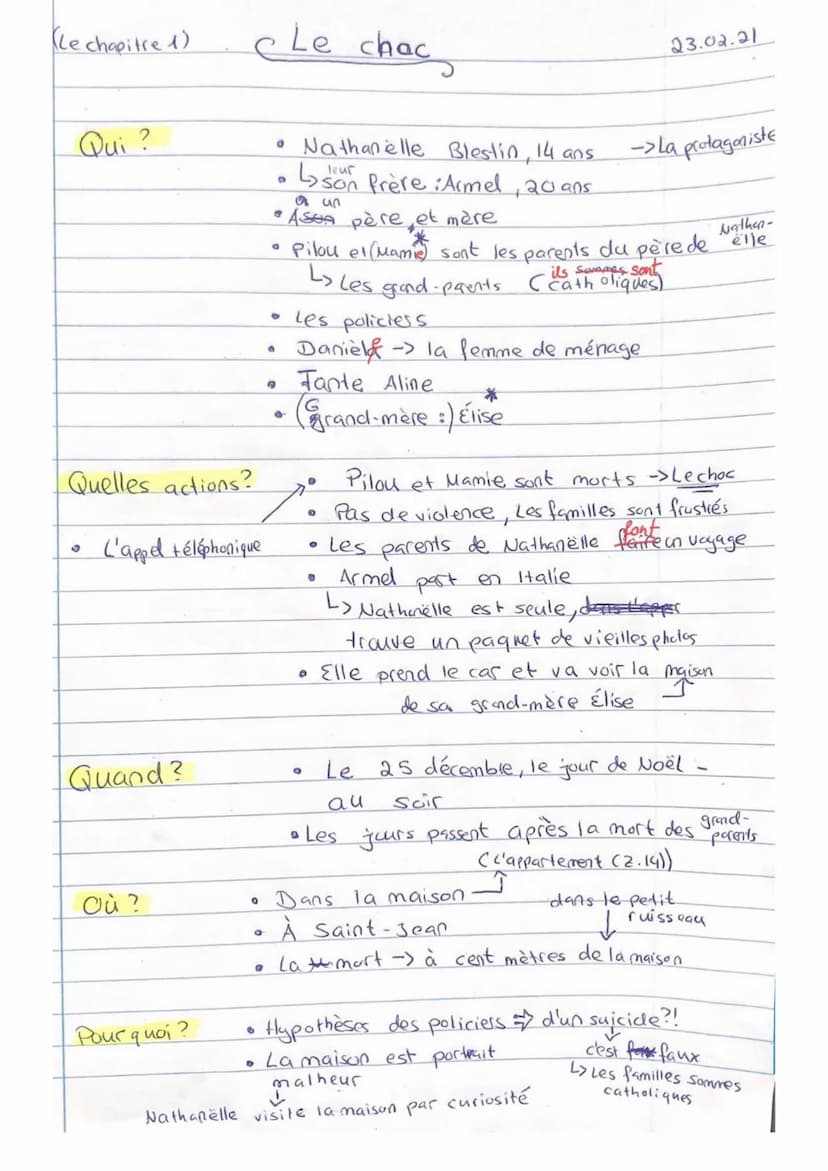 (Le chapitre 1) Le choc 23.02.21
Qui ? • Nathanëlle Blestin, 14 ans -> La protagoniste
leur
• ↳ son frère : Armel, 20 ans
a un
• A son père, et mère
• Pilou et (Mamie)* sont les parents du père de Nathan-
ëlle
ils sommes sont
↳ Les grand-parents (catholiques)
• Les policiers
• Danièle -> la femme de ménage
• Tante Aline
• (Grand-mère :) Élise *
Quelles actions? • Pilou et Mamie sont morts -> Le choc
• Pas de violence, Les familles sont frustrés
font
• L'appel téléphonique • Les parents de Nathanëlle faire un voyage
• Armel part en Italie
↳ Nathanëlle est seule, dans l'appar
trouve un paquet de vieilles photos
• Elle prend le car et va voir la maison
de sa grand-mère Élise
Quand? • Le 25 décembre, le jour de Noël -
au soir
• Les jours passent après la mort des grand-
parents
(L'appartement (Z.14))
Où ? • Dans la maison dans le petit
ruisseau
• À Saint-Jean
• La mort -> à cent mètres de la maison
Pourquoi ? • Hypothèses des policiers => d'un suicide?!
• La maison est portrait c'est faux
malheur ↳ Les familles sommes
catholiques
Nathanëlle visite la maison par curiosité